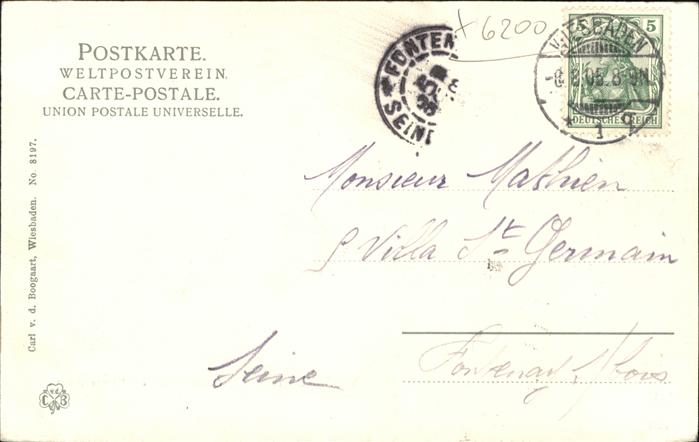 + 6200
POSTKARTE.
WELTPOSTVEREIN.
CARTE-POSTALE.
UNION POSTALE UNIVERSELLE.
FONTEN
SEINE
5 5
WIESBADEN
.05.8-9N
* 1 g
DEUTSCHES REICH
Monsieur Mathieu
9 Villa St Germain
Fontenay s/bois
Seine
Carl v. d. Boogaart, Wiesbaden. No. 8197.
C B